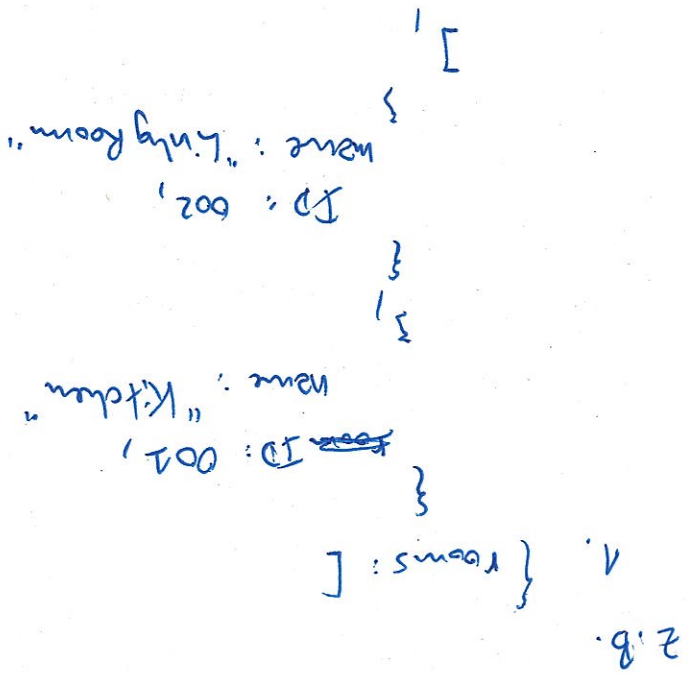 z.B.
1. { rooms : [
{
ID : 001,
name : "Kitchen"
},
{
ID : 002,
name : "Living Room"
}
],